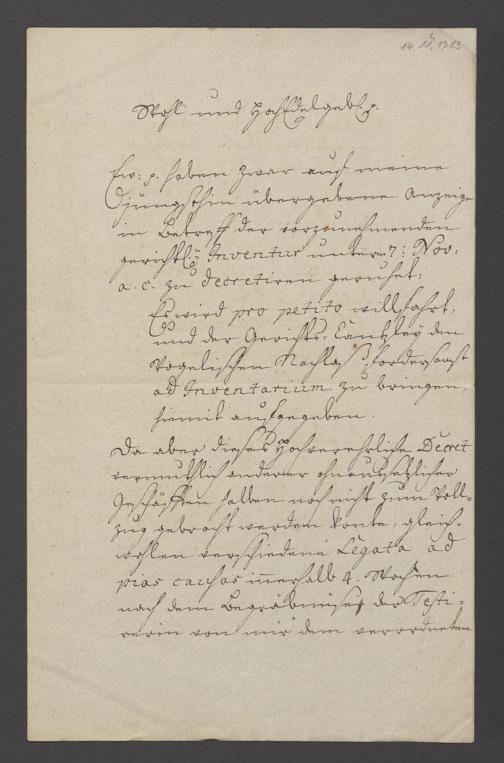 14. 11. 1783
Wohl und HochEdelgeb. p.
Ew: p. haben zwar auf meine
jüngsthin übergebene Anzeige
in Betreff der vorzunehmenden
gerichtl. Inventur unterm 7: Nov:
a. c. zu decretiren geruhet:
Es wird pro petito willfahrt,
und der Gerichts-Cantzley den
Vogelischen Nachlaß fordersamst
ad Inventarium zu bringen,
hiemit aufgegeben.
Da aber dieses Hochverehrliche Decret
vermuthlich anderer ohnaussetzlicher
Geschäfften halben noch nicht zum Voll-
zug gebracht werden konte, gleich-
wohlen verschiedene Legata ad
pias caußas innerhalb 4. Wochen
nach dem Begräbnüß der Testi-
rerin von mir dem verordneten